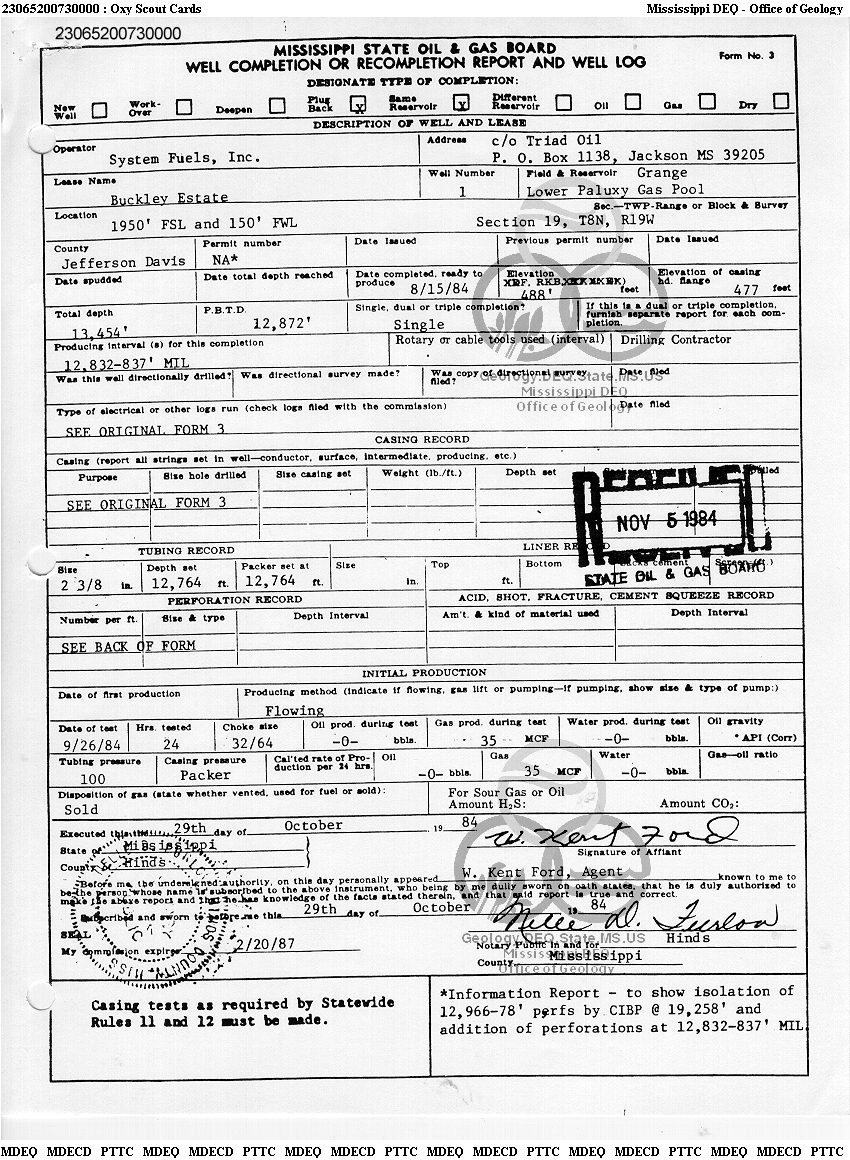 23065200730000 : Oxy Scout Cards Mississippi DEQ - Office of Geology
23065200730000
MISSISSIPPI STATE OIL & GAS BOARD
WELL COMPLETION OR RECOMPLETION REPORT AND WELL LOG
Form No. 3
DESIGNATE TYPE OF COMPLETION:
New Well Work-Over Deepen Plug Back X Same Reservoir X Different Reservoir Oil Gas Dry
DESCRIPTION OF WELL AND LEASE
Operator System Fuels, Inc.
Address c/o Triad Oil
P. O. Box 1138, Jackson MS 39205
Lease Name Buckley Estate
Well Number 1
Field & Reservoir Grange
Lower Paluxy Gas Pool
Location 1950' FSL and 150' FWL
Sec.—TWP-Range or Block & Survey
Section 19, T8N, R19W
County Jefferson Davis
Permit number NA*
Date Issued
Previous permit number
Date Issued
Date spudded
Date total depth reached
Date completed, ready to produce 8/15/84
Elevation
488' feet
Elevation of casing hd. flange 477 feet
Total depth 13,454'
P.B.T.D. 12,872'
Single, dual or triple completion? Single
If this is a dual or triple completion, furnish separate report for each completion.
Producing interval (s) for this completion 12,832-837' MIL
Rotary or cable tools used (interval)
Drilling Contractor
Was this well directionally drilled?
Was directional survey made?
Was copy of directional survey filed?
Date filed
Geology.DEQ.State.MS.US
Mississippi DEQ
Office of Geology
Type of electrical or other logs run (check logs filed with the commission)
Date filed
SEE ORIGINAL FORM 3
CASING RECORD
Casing (report all strings set in well—conductor, surface, intermediate, producing, etc.)
Purpose Size hole drilled Size casing set Weight (lb./ft.) Depth set
SEE ORIGINAL FORM 3
RECEIVED
NOV 5 1984
STATE OIL & GAS BOARD
TUBING RECORD
LINER RECORD
Size 2 3/8 in.
Depth set 12,764 ft.
Packer set at 12,764 ft.
Size in.
Top ft.
Bottom
Sacks cement
Screen (ft.)
PERFORATION RECORD
ACID, SHOT, FRACTURE, CEMENT SQUEEZE RECORD
Number per ft. Size & type Depth Interval Am't. & kind of material used Depth Interval
SEE BACK OF FORM
INITIAL PRODUCTION
Date of first production
Producing method (indicate if flowing, gas lift or pumping—if pumping, show size & type of pump:)
Flowing
Date of test 9/26/84
Hrs. tested 24
Choke size 32/64
Oil prod. during test -0- bbls.
Gas prod. during test 35 MCF
Water prod. during test -0- bbls.
Oil gravity ° API (Corr)
Tubing pressure 100
Casing pressure Packer
Cal'ted rate of Production per 24 hrs.
Oil -0- bbls.
Gas 35 MCF
Water -0- bbls.
Gas—oil ratio
Disposition of gas (state whether vented, used for fuel or sold):
Sold
For Sour Gas or Oil
Amount H2S: Amount CO2:
Executed this the 29th day of October 19 84
State of Mississippi
County of Hinds
W. Kent Ford
Signature of Affiant
Before me, the undersigned authority, on this day personally appeared W. Kent Ford, Agent known to me to
be the person whose name is subscribed to the above instrument, who being by me duly sworn on oath states, that he is duly authorized to
make the above report and that he has knowledge of the facts stated therein, and that said report is true and correct.
Subscribed and sworn to before me this 29th day of October 19 84
SEAL
My commission expires 2/20/87
Geology.DEQ.State.MS.US
Mississippi DEQ
Office of Geology
Notary Public in and for Hinds
County, Mississippi
Casing tests as required by Statewide
Rules 11 and 12 must be made.
*Information Report - to show isolation of
12,966-78' perfs by CIBP @ 19,258' and
addition of perforations at 12,832-837' MIL
MDEQ MDECD PTTC MDEQ MDECD PTTC MDEQ MDECD PTTC MDEQ MDECD PTTC MDEQ MDECD PTTC MDEQ MDECD PTTC